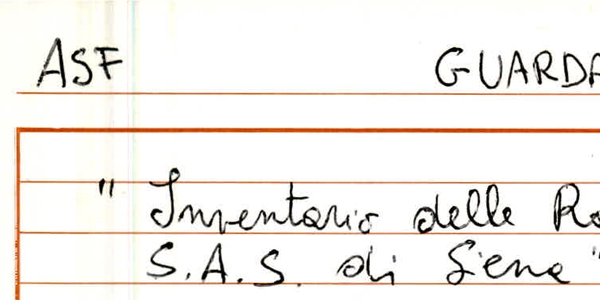 ASF GUARDA
" Inventario delle Ro
S.A.S. di Siena "